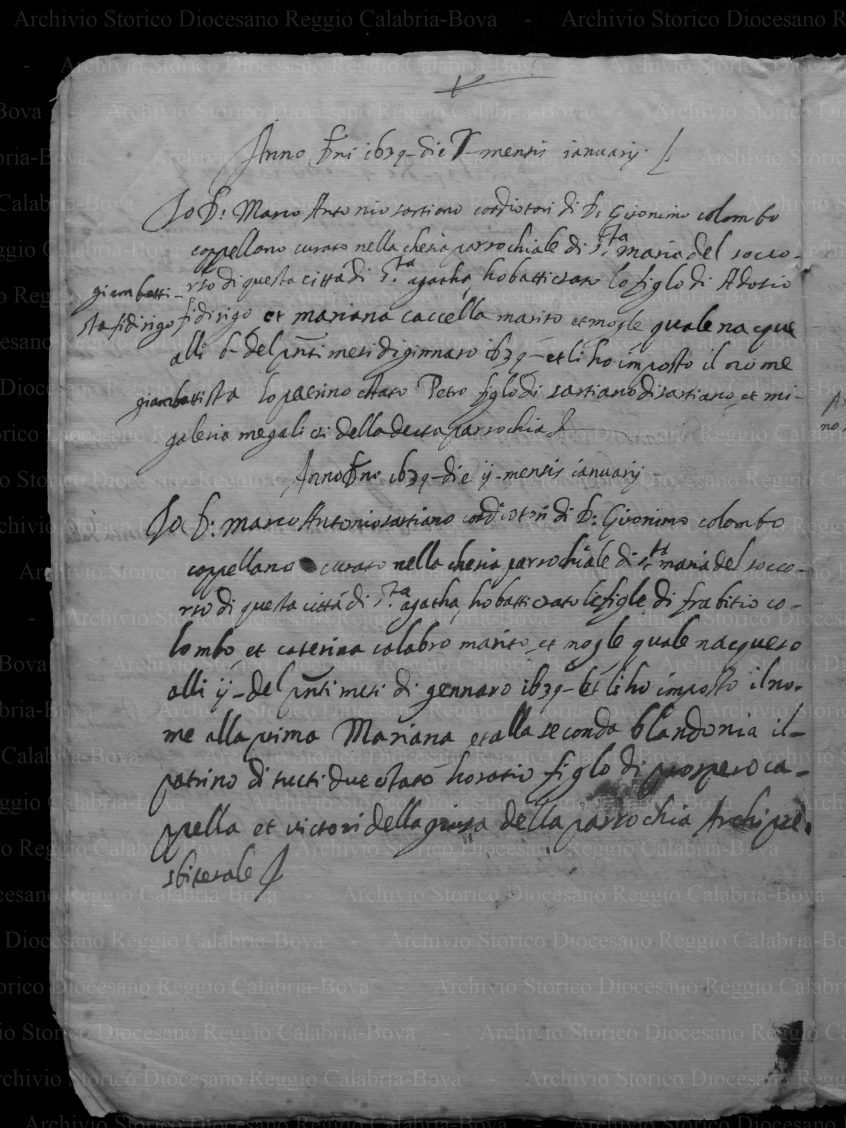 Anno Dni 1639 - die V - mensis ianuarij
Io D: Marco Antonio sartiano coadiotori di D: Gironimo colombo
coppellano curato nella chesia parrochiale di s.ta maria del socco-
rso di questa città di s.ta agatha, ho batticzato lo figlo di
giambatti-
sta fidirigo
fidirigo et mariana caccella marito et mogle quale nacque
alli 6 - del pnti mesi di ginnaro 1639 - et li ho imposto il nome
giambattista lo patrino è stato Petro figlo di sartiano di sartiano, et mi-
galeria megali et della detta parrochia
Anno Dni 1639 - die ij - mensis ianuarij -
Io D: marco Antonio sartiano coadiotori di D: Gironimo colombo
coppellano curato nella chesia parrochiale di s.ta maria del socco-
rso di questa città di s.ta agatha, ho batticzato le figle di frabitio co-
lombo, et caterina calabro marito, et mogle quale nacquero
alli ij - del pnti mesi di gennaro 1639 - et li ho imposto il no-
me alla prima Mariana et alla seconda blandonia il
patrino di tutti due è stato horatio figlo di prospero ca-
ppella et victori della della parrochia Archipre
sbiterale